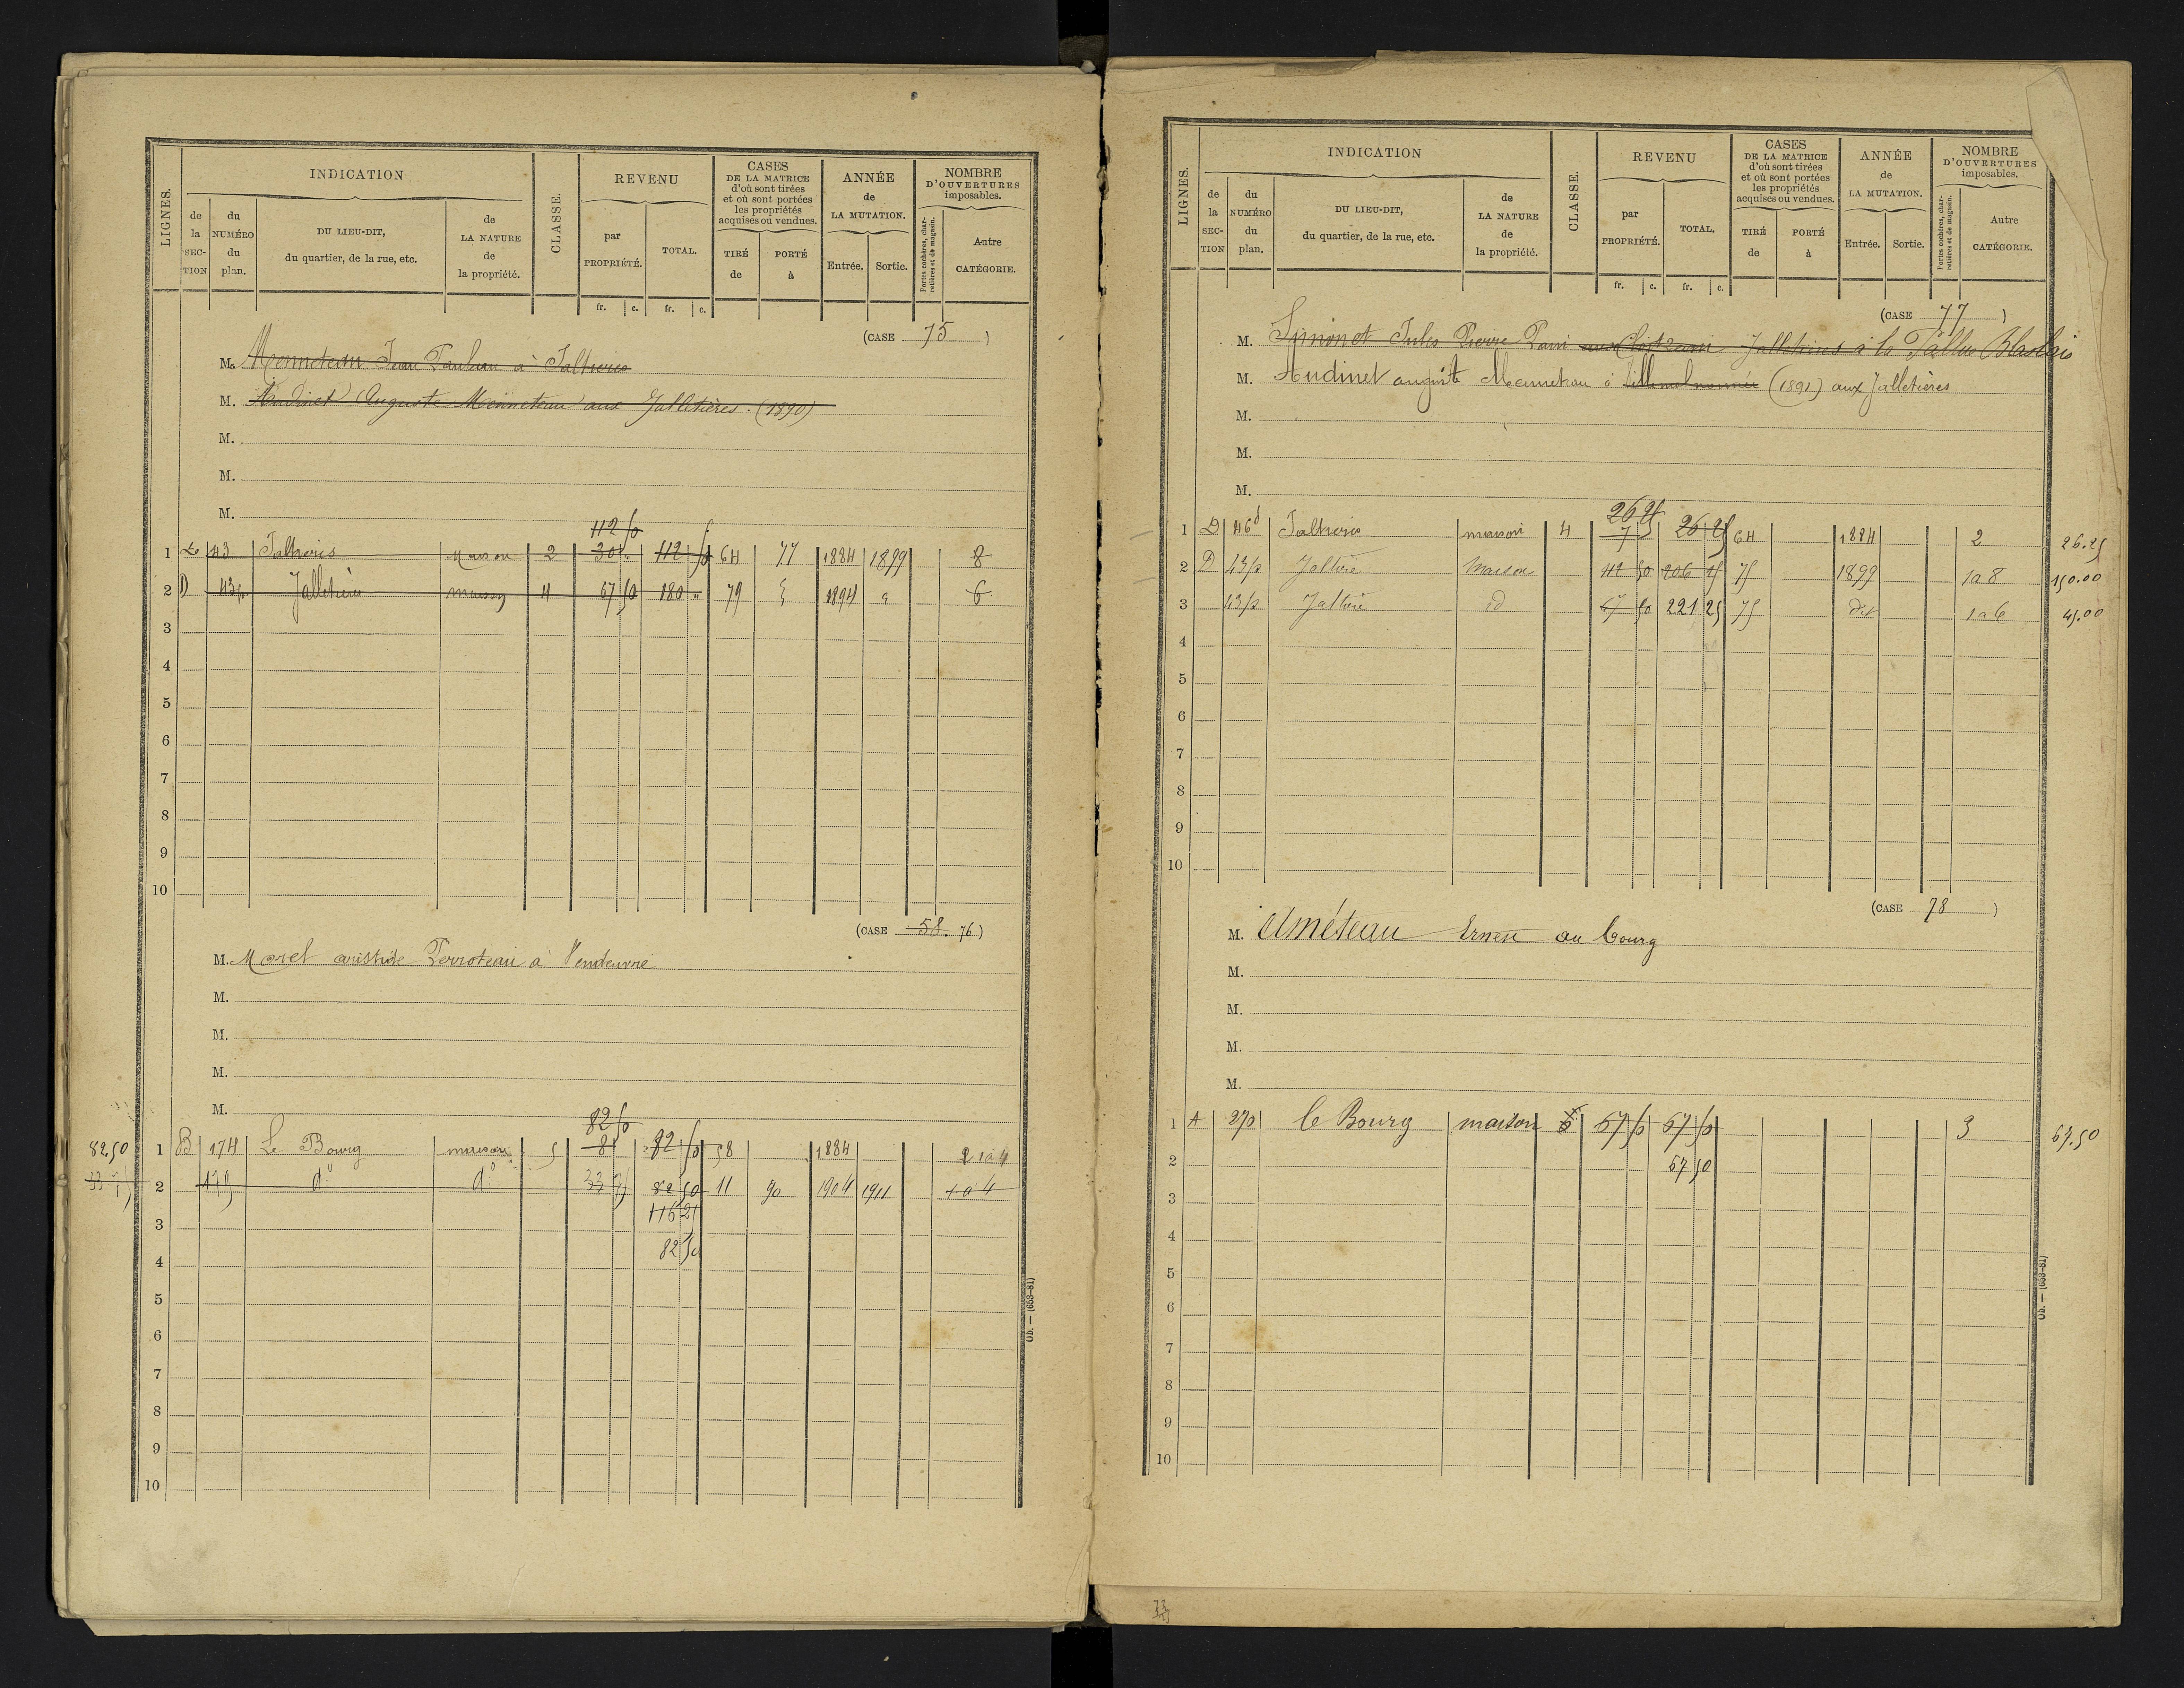 LIGNES. INDICATION CLASSE. REVENU CASES DE LA MATRICE d'où sont tirées et où sont portées les propriétés acquises ou vendues. ANNÉE de LA MUTATION. NOMBRE D'OUVERTURES imposables.
de la SECTION du NUMÉRO du plan. DU LIEU-DIT, du quartier, de la rue, etc. de LA NATURE de la propriété. par PROPRIÉTÉ. TOTAL. TIRÉ de PORTÉ à Entrée. Sortie. Portes cochères, charretières et de magasin. Autre CATÉGORIE.
fr. c. fr. c.
(CASE 75 )
M. Menneteau Jean à
M. Audinet Auguste Menneteau aux Jalletières. (1890)
M.
M.
M.
112 50
1 43 Maison 2 30 " 112 50 64 77 1884 1899 8
2 D 43p. Jalletière maison 4 67 50 180 " 79 1894 6
3
4
5
6
7
8
9
10
(CASE 58. 76)
M. Morel aristide Perroteau à Vendeuvre
M.
M.
M.
M.
82 50
82.50 1 B 174 Le Bourg maison 5 8 82 50 58 1884 2 1a4
2 179 d° d° 33 75 82 50 11 90 1904 1911 1a4
3 116 25
4 82 50
5
6
7
8
9
10
Ob. — (653-81)
LIGNES. INDICATION CLASSE. REVENU CASES DE LA MATRICE d'où sont tirées et où sont portées les propriétés acquises ou vendues. ANNÉE de LA MUTATION. NOMBRE D'OUVERTURES imposables.
de la SECTION du NUMÉRO du plan. DU LIEU-DIT, du quartier, de la rue, etc. de LA NATURE de la propriété. par PROPRIÉTÉ. TOTAL. TIRÉ de PORTÉ à Entrée. Sortie. Portes cochères, charretières et de magasin. Autre CATÉGORIE.
fr. c. fr. c.
(CASE 77 )
M. Simonet Jules Pierre à la
M. Audinet auguste Menneteau à (1891) aux Jalletières
M.
M.
M.
26 25
1 D 46 maison 4 7 5 26 25 64 1884 2 26.25
2 D 43p maison 112 50 206 25 75 1899 1a8 150.00
3 43p id 67 50 221 25 75 1a6 45.00
4
5
6
7
8
9
10
(CASE 78 )
M. Améteau Ernest au bourg
M.
M.
M.
M.
1 A 270 le Bourg maison 67 50 67 50 3 67.50
2 67 50
3
4
5
6
7
8
9
10
Ob. — (653-81)